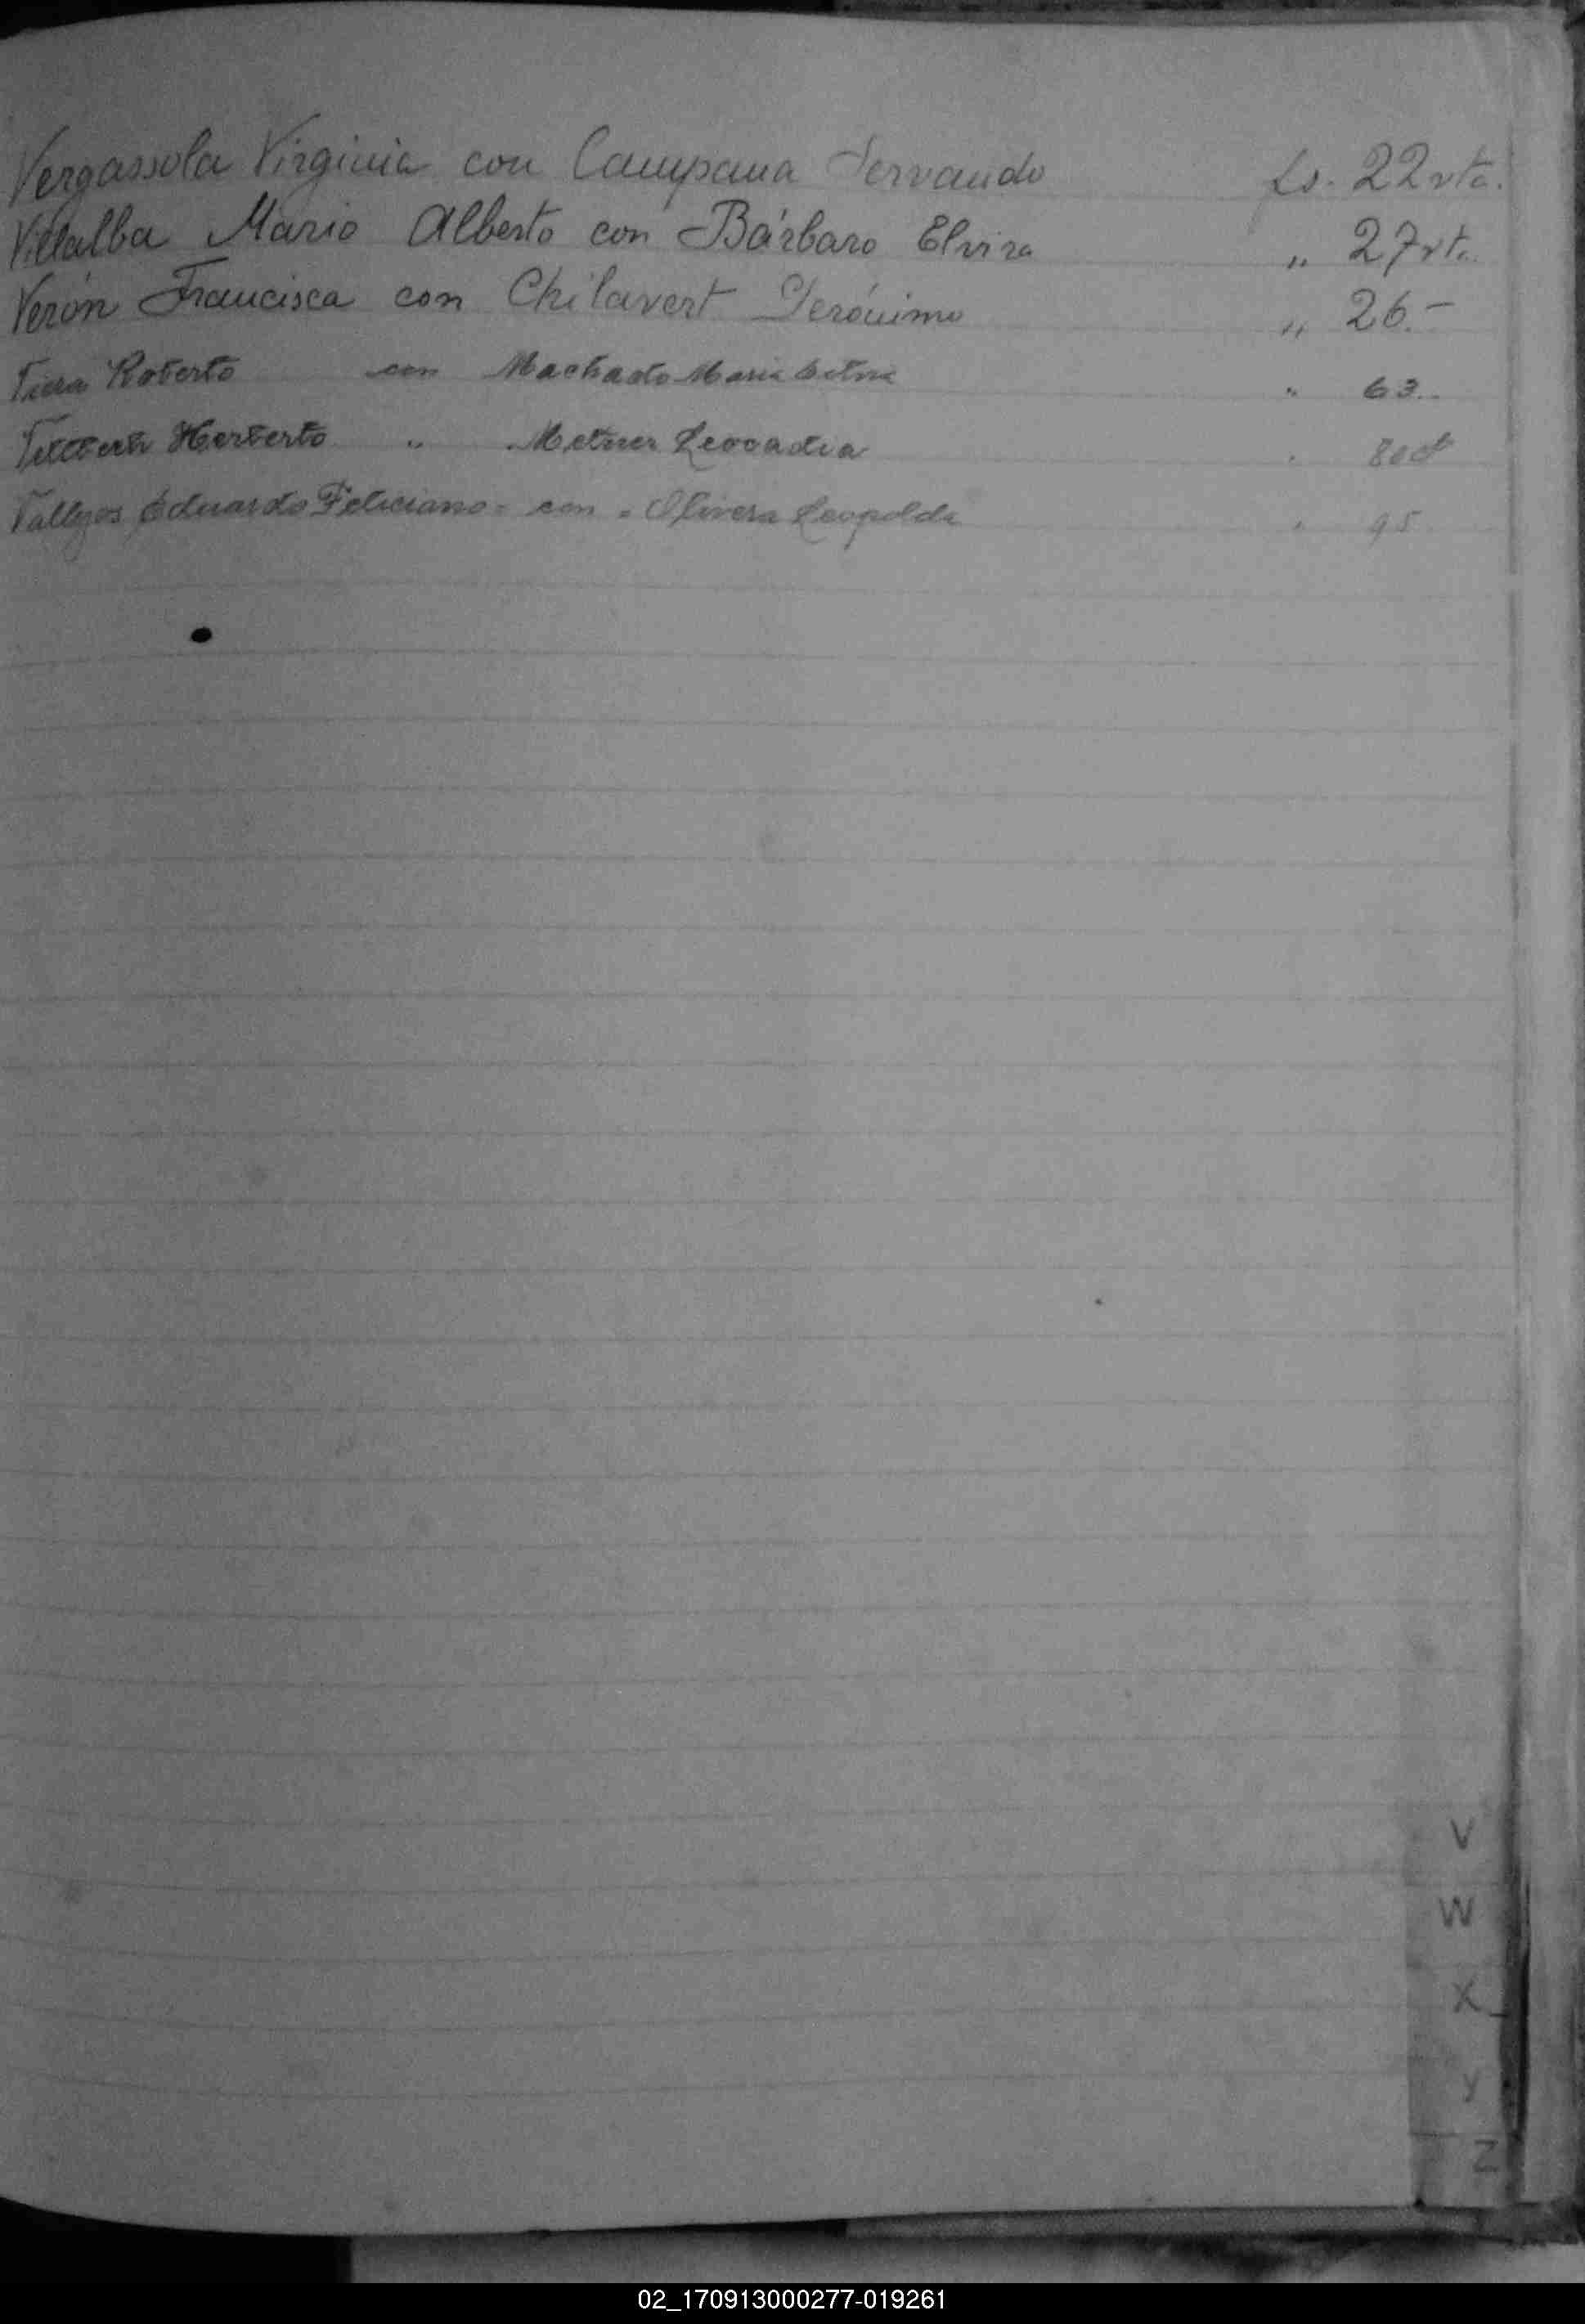 Vergassola Virginia con Campana Servando fs. 22 vta.
Villalba Mario Alberto con Bárbaro Elvira " 27 vta.
Verón Francisca con Chilavert Gerónimo " 26.-
Roberto con Machado Maria " 63..
Herberto " Metner Leocadia
Vallejos Eduardo Feliciano = con = Olivera Leopolda " 95
V
W
X
Y
Z
02_170913000277-019261